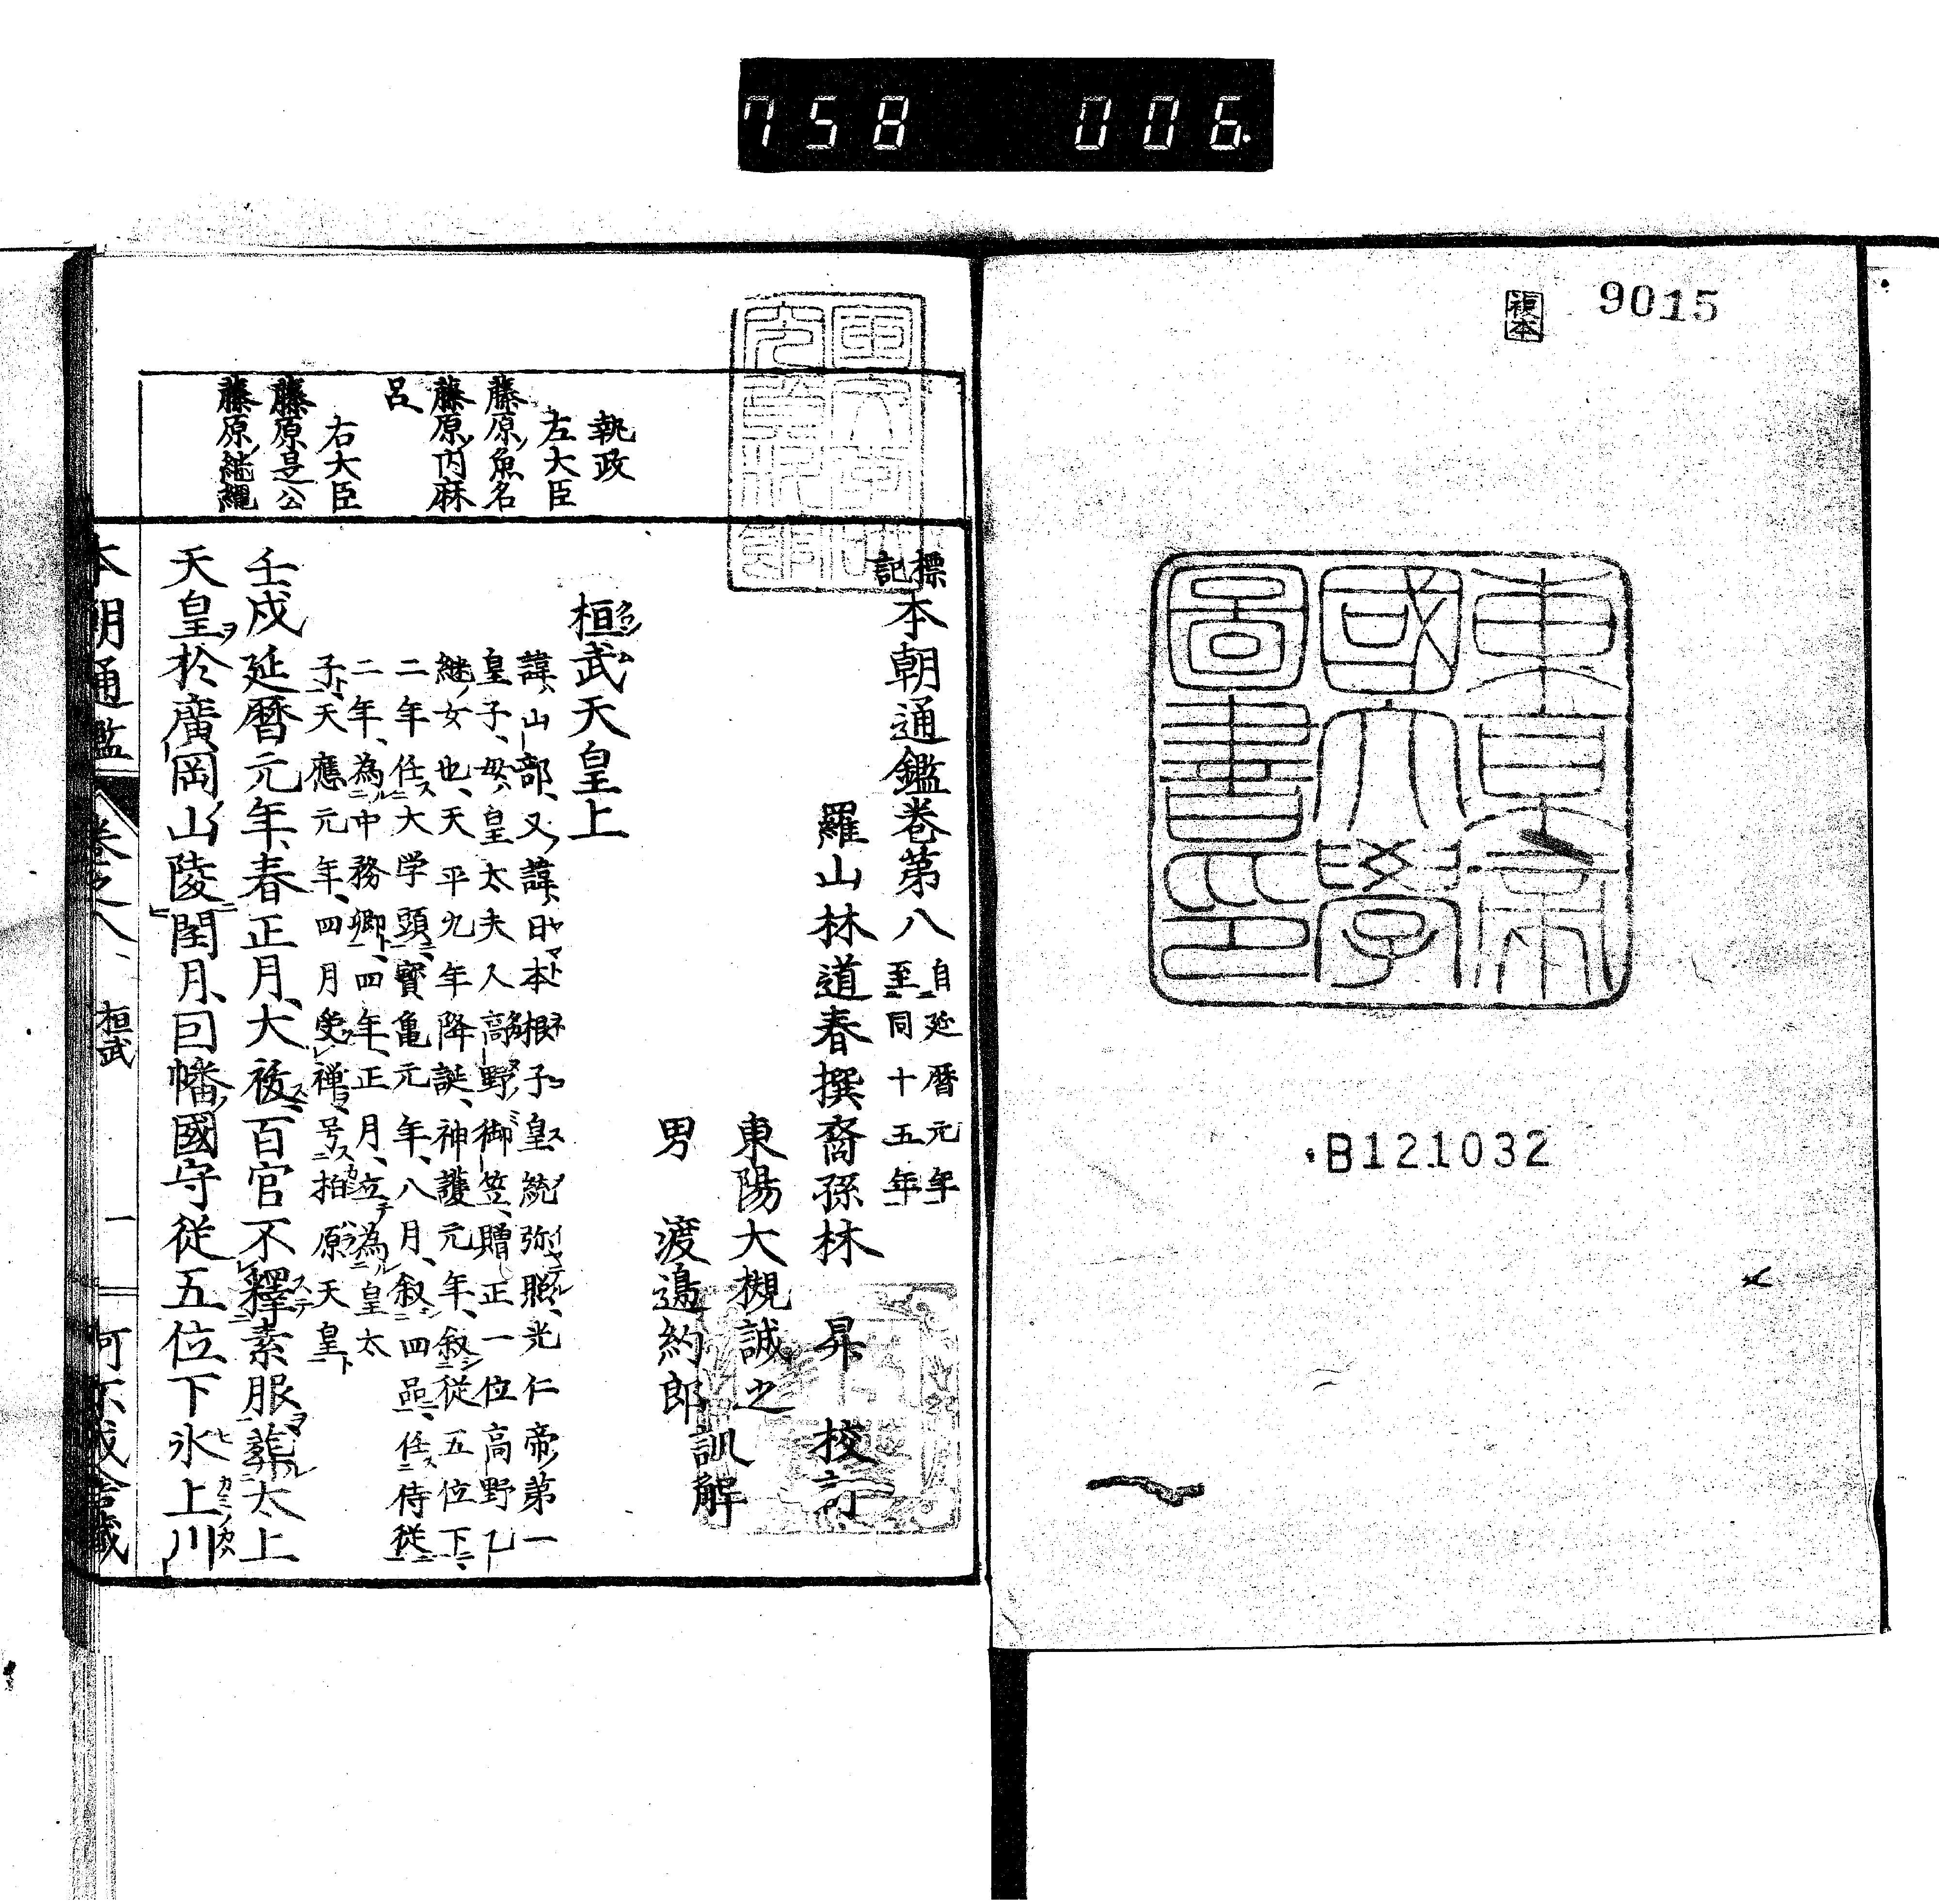 758 006
複本
9015
東京帝
國大學
圖書印
B121032
標記本朝通鑑巻第八自延暦元年至同十五年
羅山林道春撰裔孫林 昇 挍訂
東陽大槻誠之
男 渡邉約郎
訓解
執政
左大臣
藤原ノ魚名
藤原ノ内麻
呂
右大臣
藤原是公
藤原ノ継縄
桓武天皇上
諱ハ山部、又ノ諱ハ日本根子皇統弥照、光仁帝ノ第一
皇子、母ハ皇太夫人高野御笠、贈正一位高野乙
継ノ女也、天平九年降誕、神護元年、叙従五位下、
二年任大学頭、寳亀元年、八月、叙四品、任侍従
二年、為中務卿、四年、正月、立為皇太
子、天應元年、四月受禅、号柏原天皇
壬戌延暦元年、春正月、大祓百官不釋素服葬太上
天皇ヲ於廣岡山陵閏月、因幡國守従五位下氷上川
本朝通鑑 巻之八 桓武 一